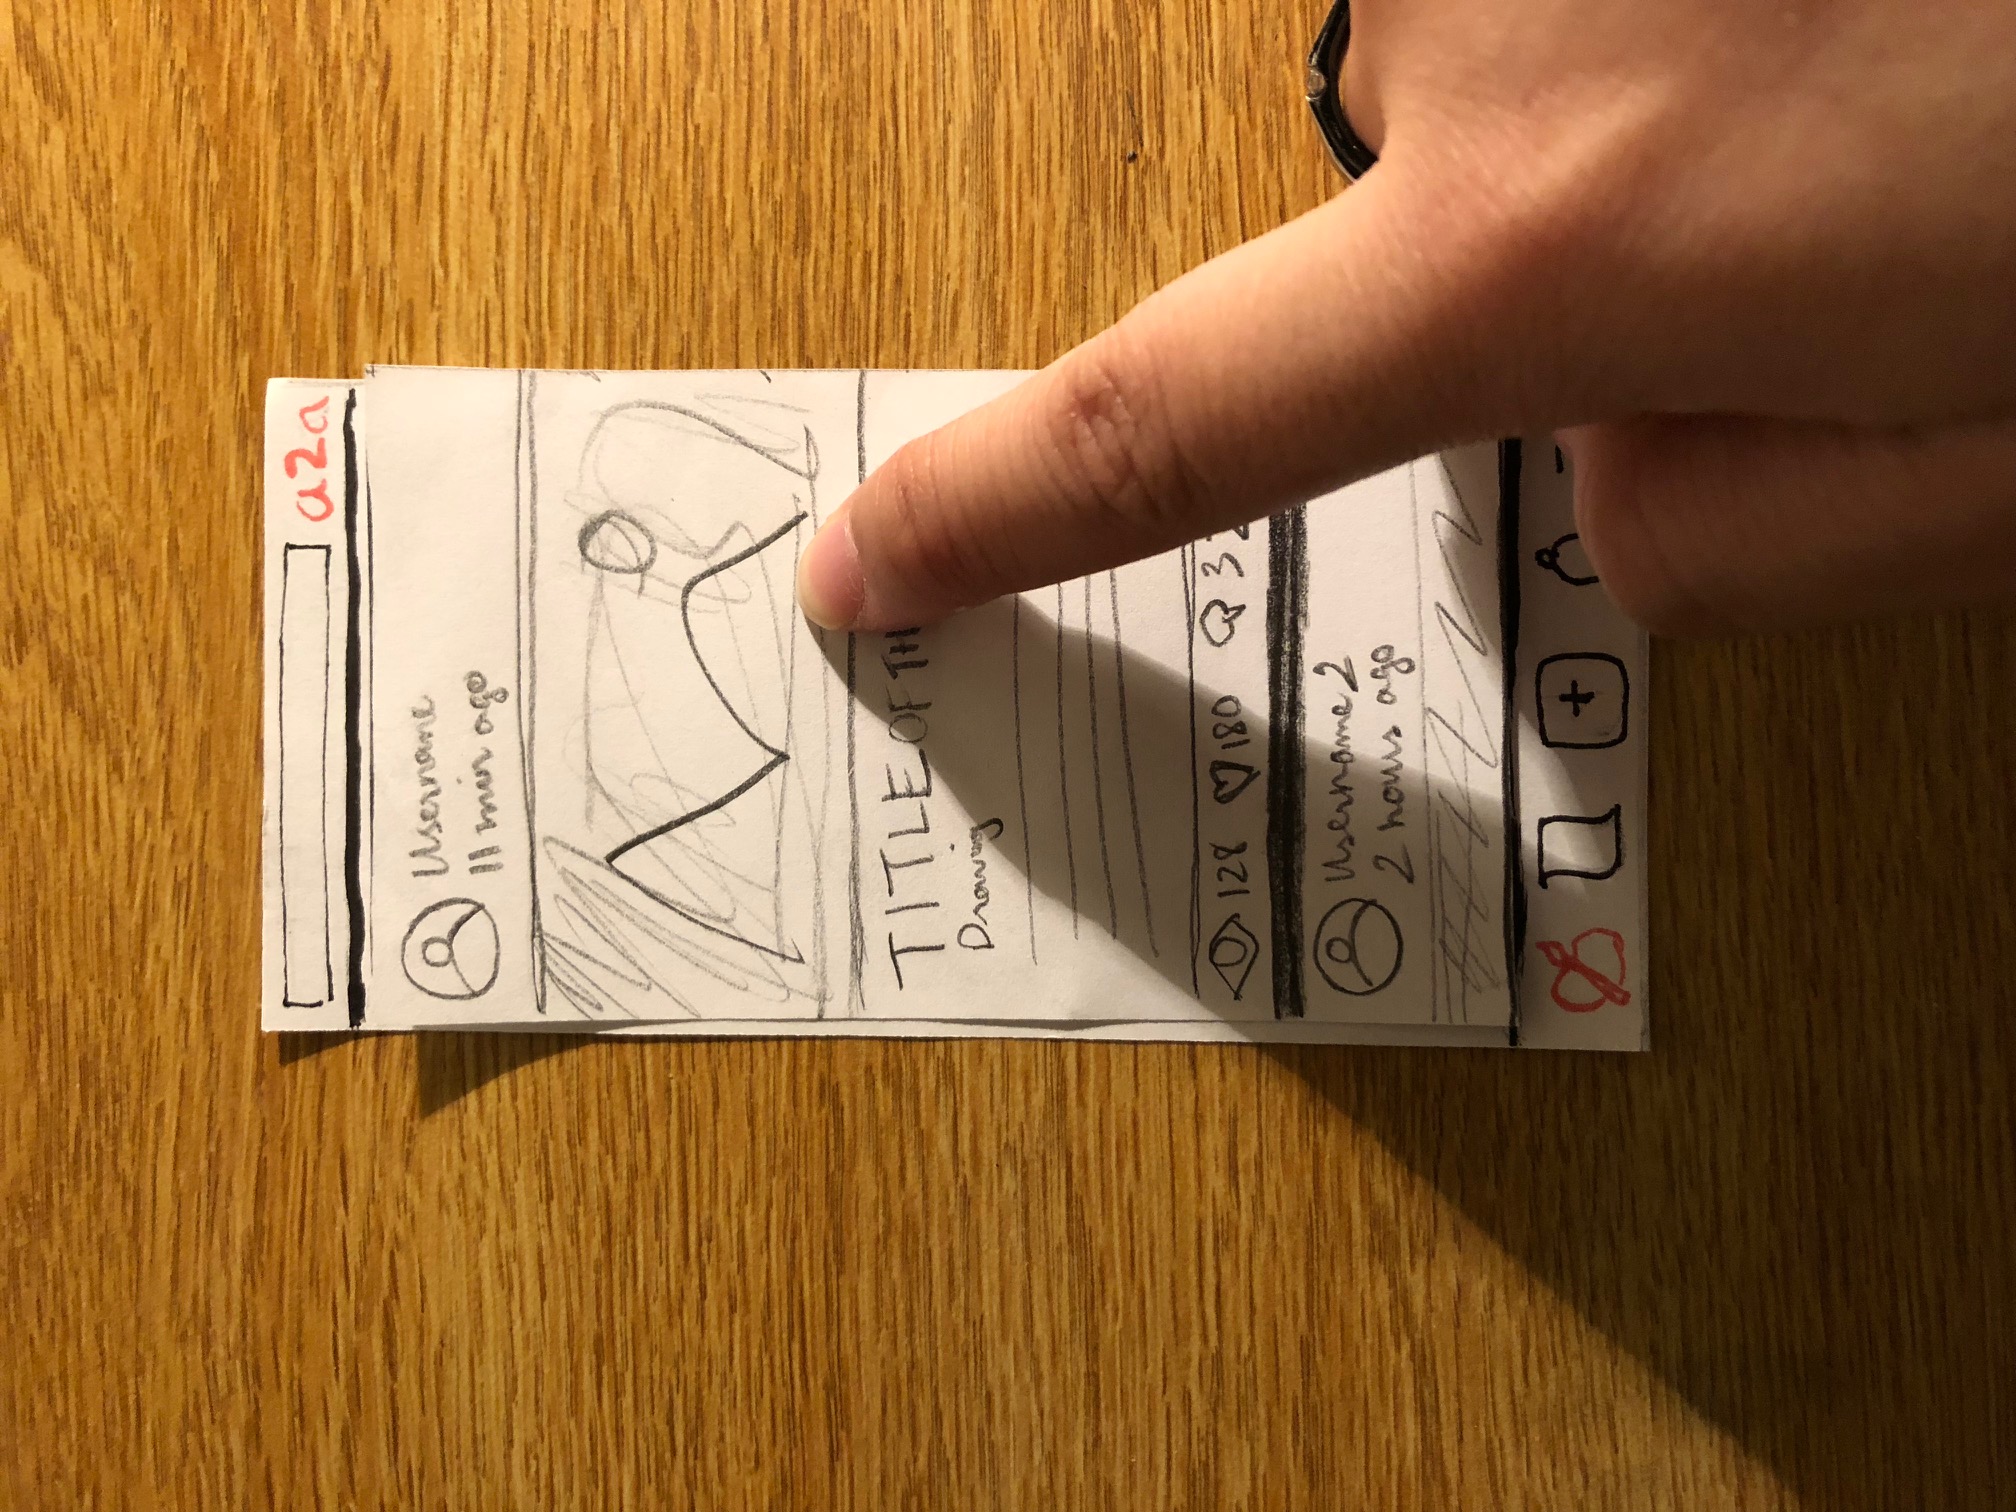 a2a
Username
11 min ago
TITLE OF
Drawing
128 180
Username 2
2 hours ago
+